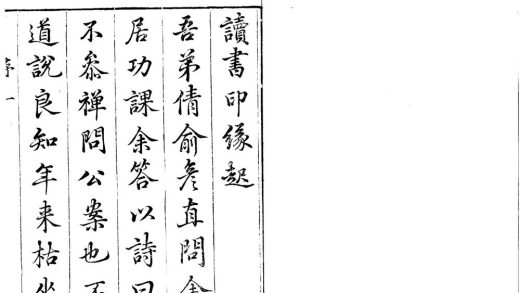 讀書印緣起
吾弟倩俞彥直問余
居功課余答以詩曰
不參禪問公案也不
道說良知年来枯坐
序一